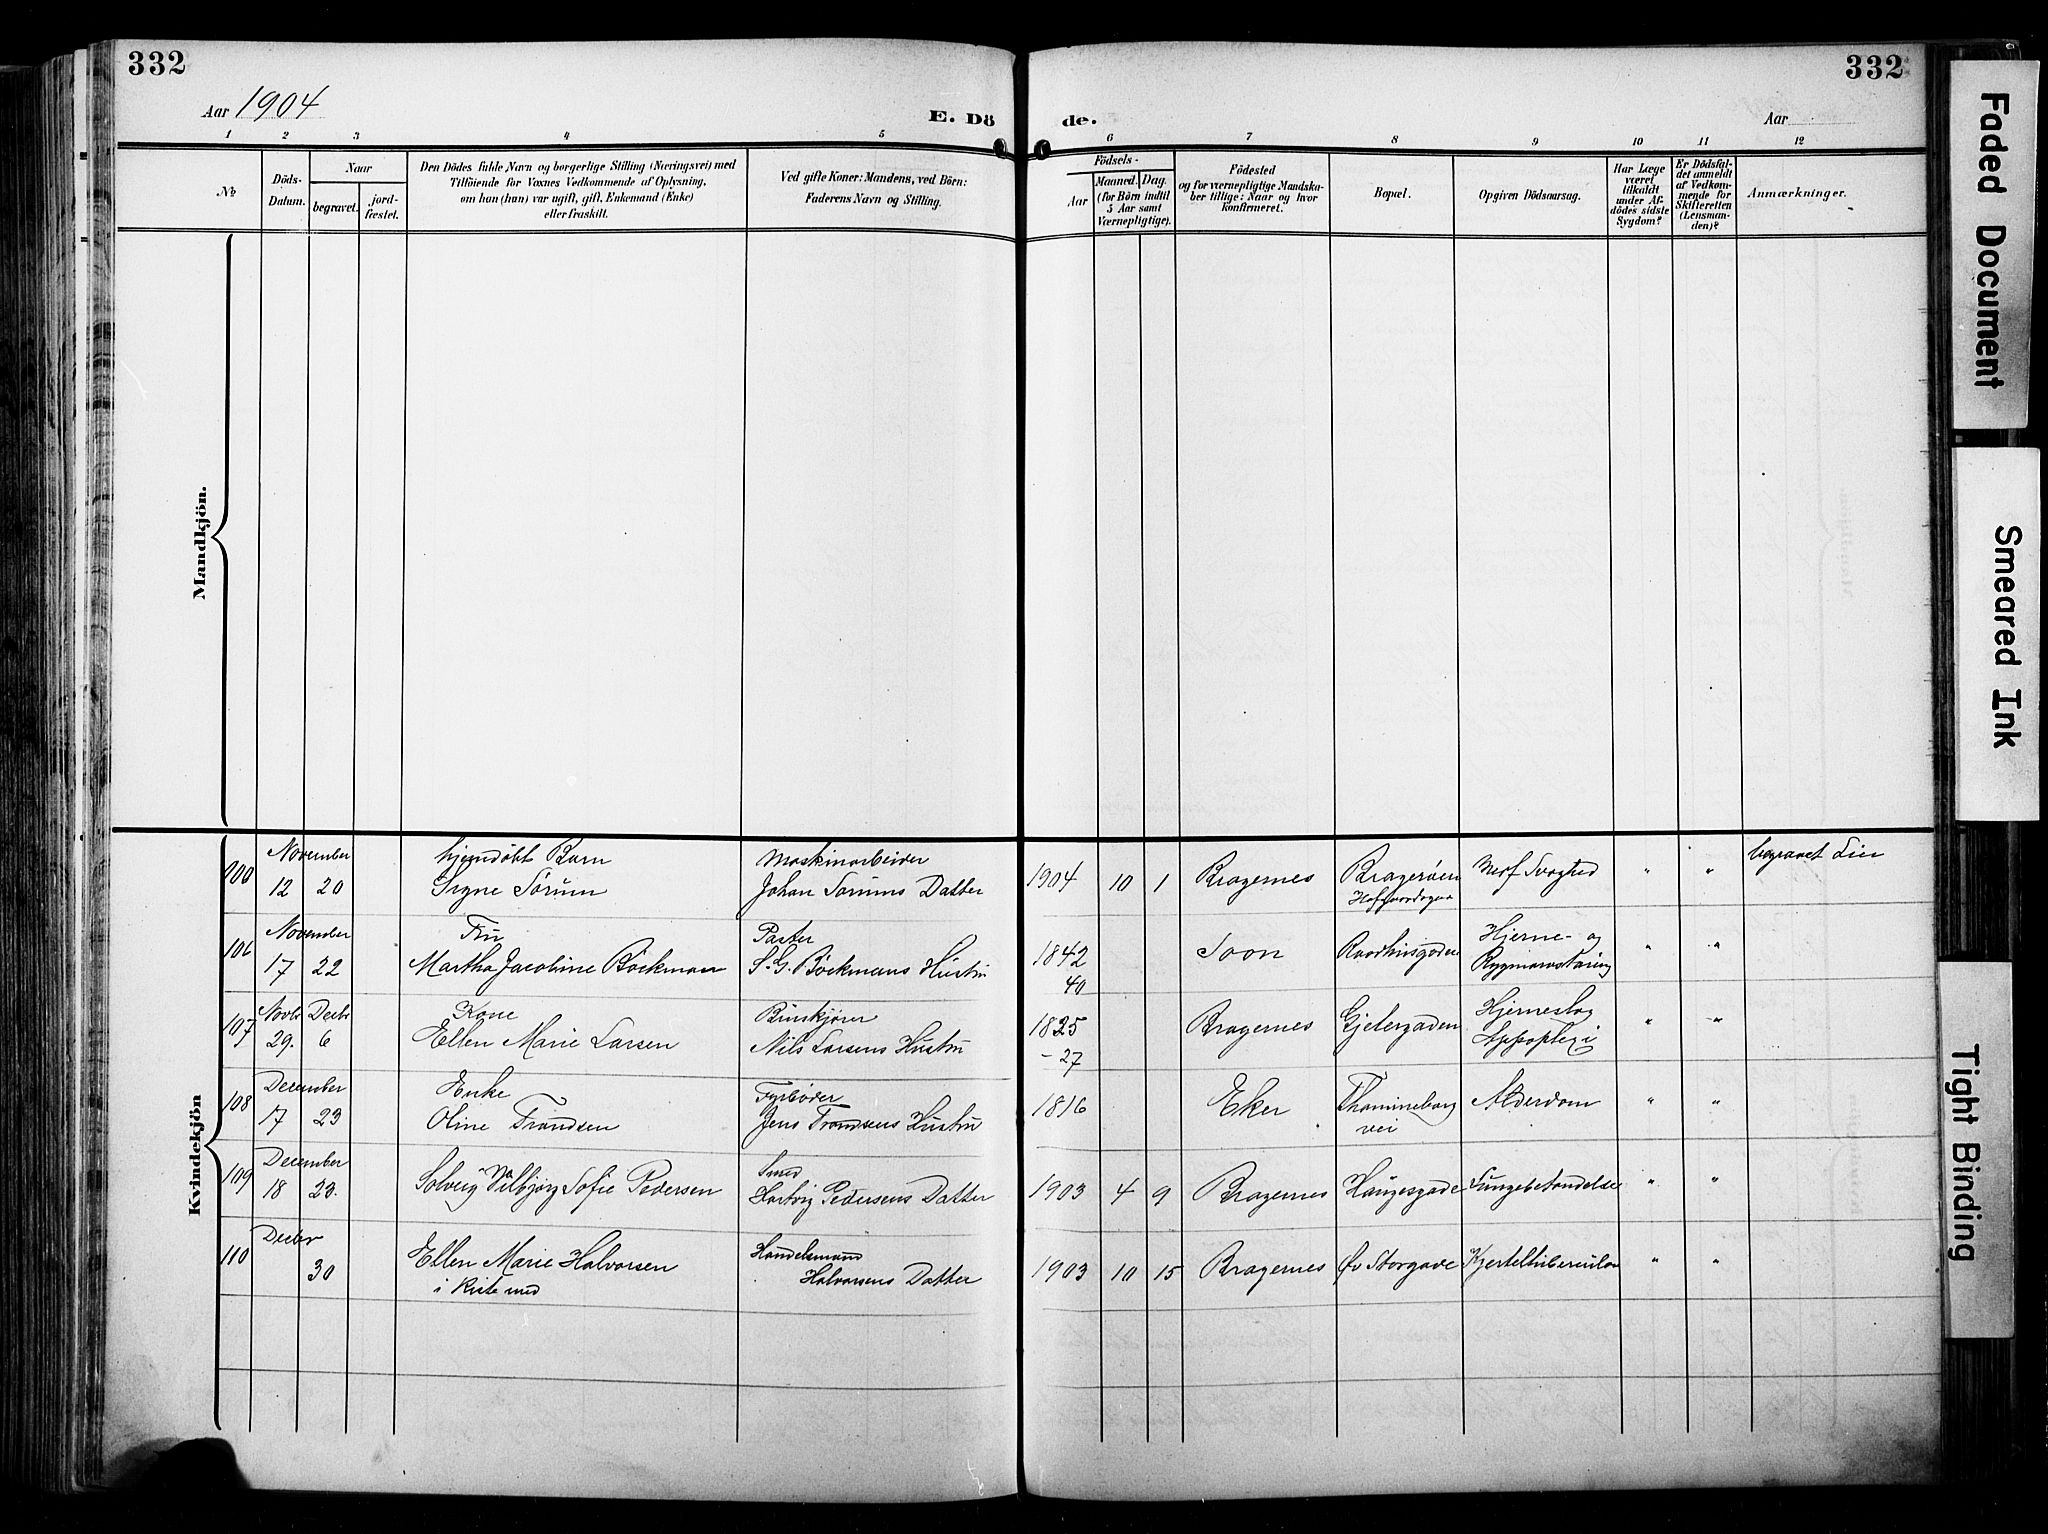 332
332
Aar 1904
E. Dö
de.
Aar
1 2 3 4 5 6 7 8 9 10 11 12
No
Döds-
Datum.
Naar
begravet.
jord-
fæstet.
Den Dödes fulde Navn og borgerlige Stilling (Næringsvei) med
Tilföiende for Voxnes Vedkommende af Oplysning,
om han (hun) var ugift, gift, Enkemand (Enke)
eller fraskilt.
Ved gifte Koner: Mandens, ved Börn:
Faderens Navn og Stilling.
Födsels-
Aar
Maaned. Dag.
(for Börn indtil
5 Aar samt
Værnepligtige).
Födested
og for værnepligtige Mandska-
ber tillige: Naar og hvor
konfirmeret.
Bopæl.
Opgiven Dödsaarsag.
Har Læge
været
tilkaldt
under Af-
dödes sidste
Sygdom?
Er Dödsfal-
det anmeldt
af Vedkom-
mende for
Skifteretten
(Lensman-
den)?
Anmærkninger.
Mandkjön.
Kvindekjön
November hjemdöbt Barn Maskinarbeider
12 20 Signe Sörum Johan Sorums Datter 1904 10 1 Bragernes Brageröen Medf Svaghed " " begravet Lier
106 November Fru Pastor Hjerne- og
17 22 Martha Jacobine Böckman S. G. Böckmans Hustru 1842 Soon Raadhusgaden " "
40
107 Novbr Decbr Kone
29. 6 Ellen Marie Larsen Nils Larsens Hustru 1825 Bragernes Gjetergaden Hjerneslag " "
-27 Appoplegi
108 December Enke Fyrböder
17 23 Oline Trondsen Jens Trondsens Hustru 1816 Eker Thamineborg Alderdom " "
vei
109 December Smed
18 23. Solveig Valbjörg Sofie Pedersen Hartvig Pedersens Datter 1903 4 9 Bragernes Haugesgade Lungebetændelse " "
110 Decbr Handelsmand
30 Ellen Marie Halvorsen Halvorsens Datter 1903 10 15 Bragernes Öv Storgade " "
i Kiste med
Faded Document
Smeared Ink
Tight Binding